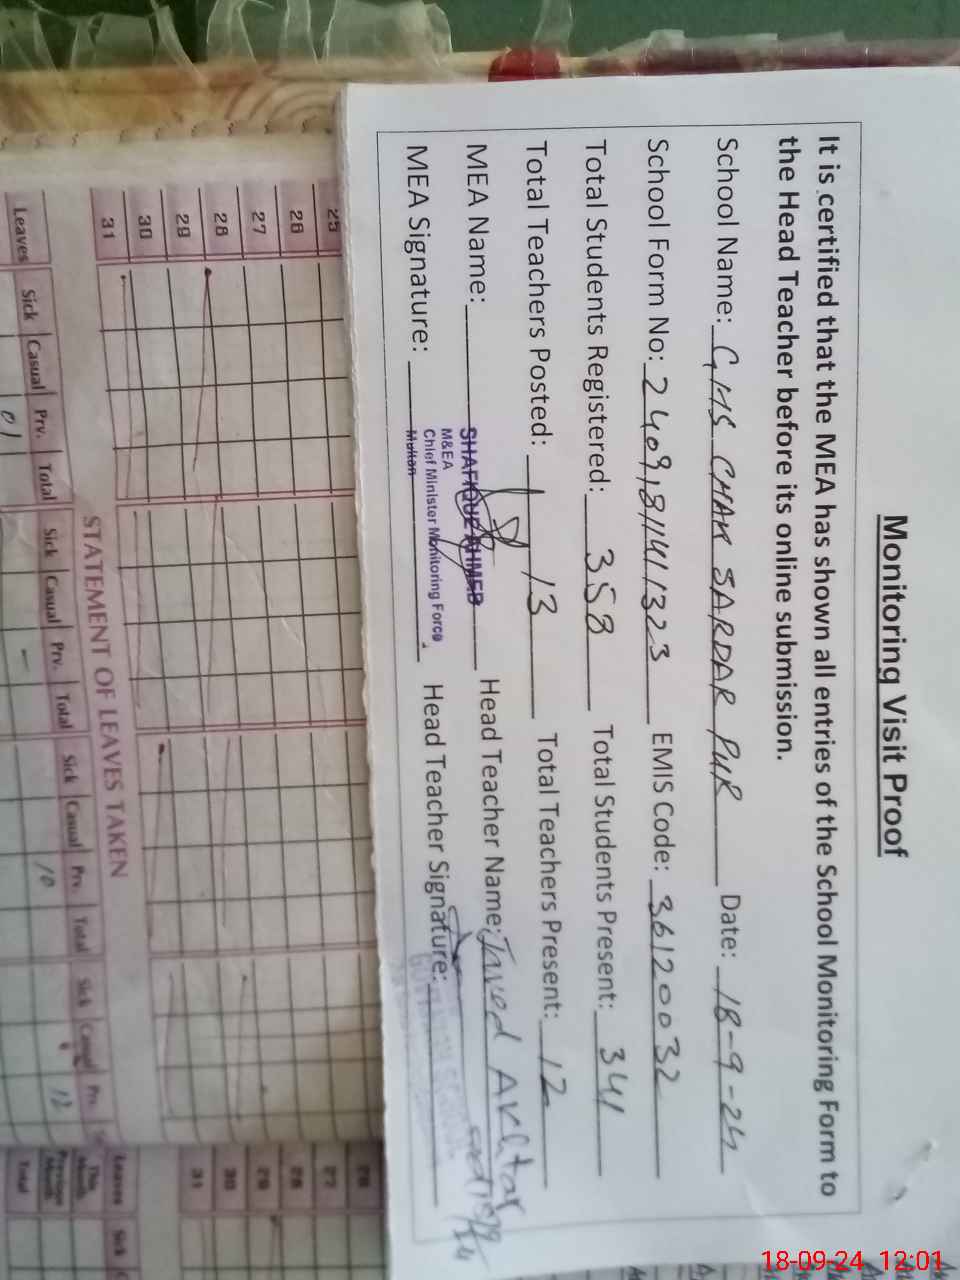 Monitoring Visit Proof
It is certified that the MEA has shown all entries of the School Monitoring Form to
the Head Teacher before its online submission.
School Name: GMS CHAK SARDAR PUR Date: 18-9-24
School Form No: 2409181141323 EMIS Code: 36120032
Total Students Registered: 358 Total Students Present: 341
Total Teachers Posted: 13 Total Teachers Present: 12
MEA Name: SHAFIQUE AHMED Head Teacher Name: Javed Akhtar
M&EA
Chief Minister Monitoring Force,
Multan
MEA Signature: Head Teacher Signature:
25
26
27
28
29
30
31
STATEMENT OF LEAVES TAKEN
Leaves Sick Casual Prv. Total Sick Casual Prv. Total Sick Casual Prv. Total Sick Casual Prv.
01 10 12
28
27
28
29
30
31
Leaves Sick
This Month
Previous Month
Total
18-09-24 12:01